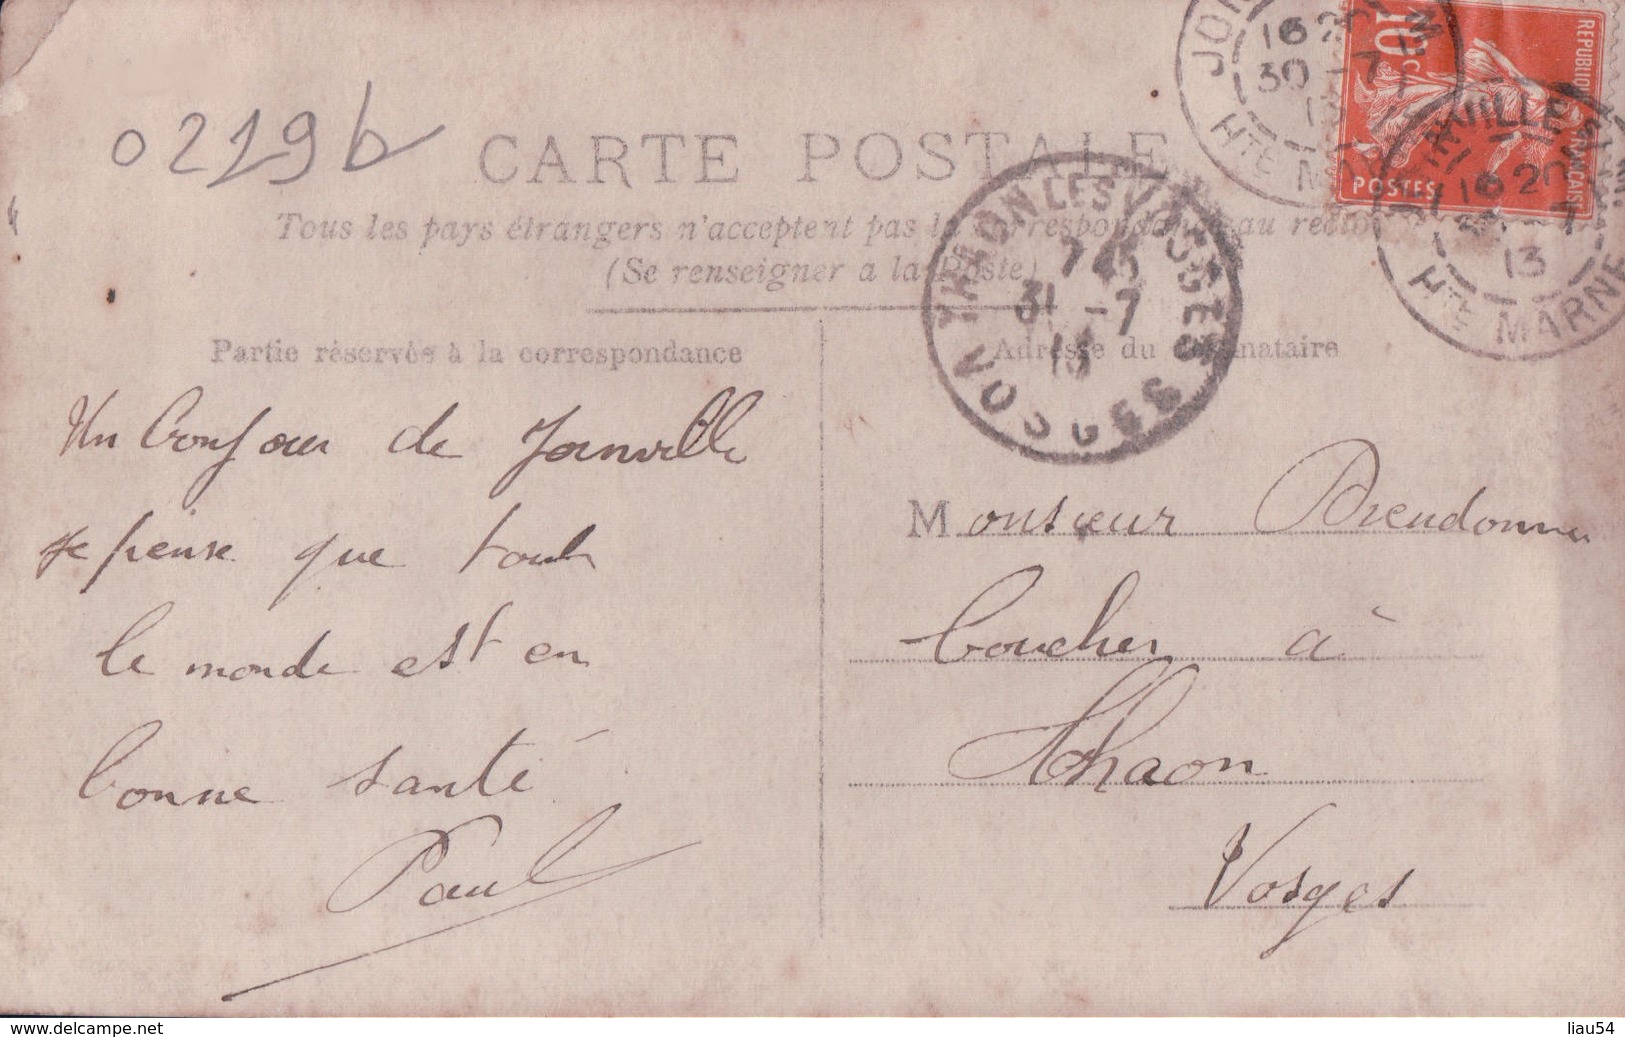 02219b
CARTE POSTALE
Tous les pays étrangers n'acceptent pas la correspondance au recto
(Se renseigner a la Poste)
JOINVILLE
1620
30 -7
13
Hte MARNE
10c
REPUBLIQUE FRANÇAISE
POSTES
JOINVILLE
1620
30 -7
13
Hte MARNE
THAON LES VOSGES
745
31 -7
13
VOSGES
Partie réservée à la correspondance
Adresse du destinataire
Un bonjour de Joinville
je pense que tout
le monde est en
bonne santé
Paul
Monsieur Dieudonné
boucher à
Thaon
Vosges
www.delcampe.net
liau54